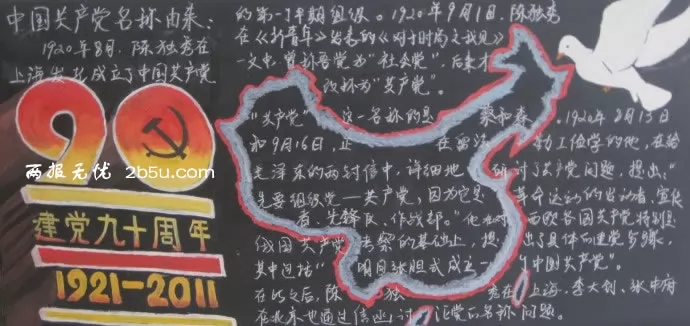 中国共产党名称由来：
1920年8月，陈独秀在
上海发起成立了中国共产党
的第一个早期组织。1920年9月1日，陈独秀
在《新青年》发表的《对于时局之我见》
一文中，曾称吾党为"社会党"，后来才
改称为"共产党"。
"共产党"这一名称的是蔡和森。1920年8月13日
和9月16日，正在留法勤工俭学的他，在给
毛泽东的两封信中，详细地研讨了共产党问题，提出："
先要组织党—共产党，因为它是革命运动的发动者、宣传
者、先锋队、作战部。"他在对西欧各国共产党特别是
俄国共产党考察的基础上，提出了具体的建党步骤，
其中包括"明目张胆正式成立一个中国共产党"。
在此之后，陈独秀在上海、李大钊、张申府
在北京也通过信函讨论党的名称问题。
90
两报无忧 2b5u.com
建党九十周年
1921-2011